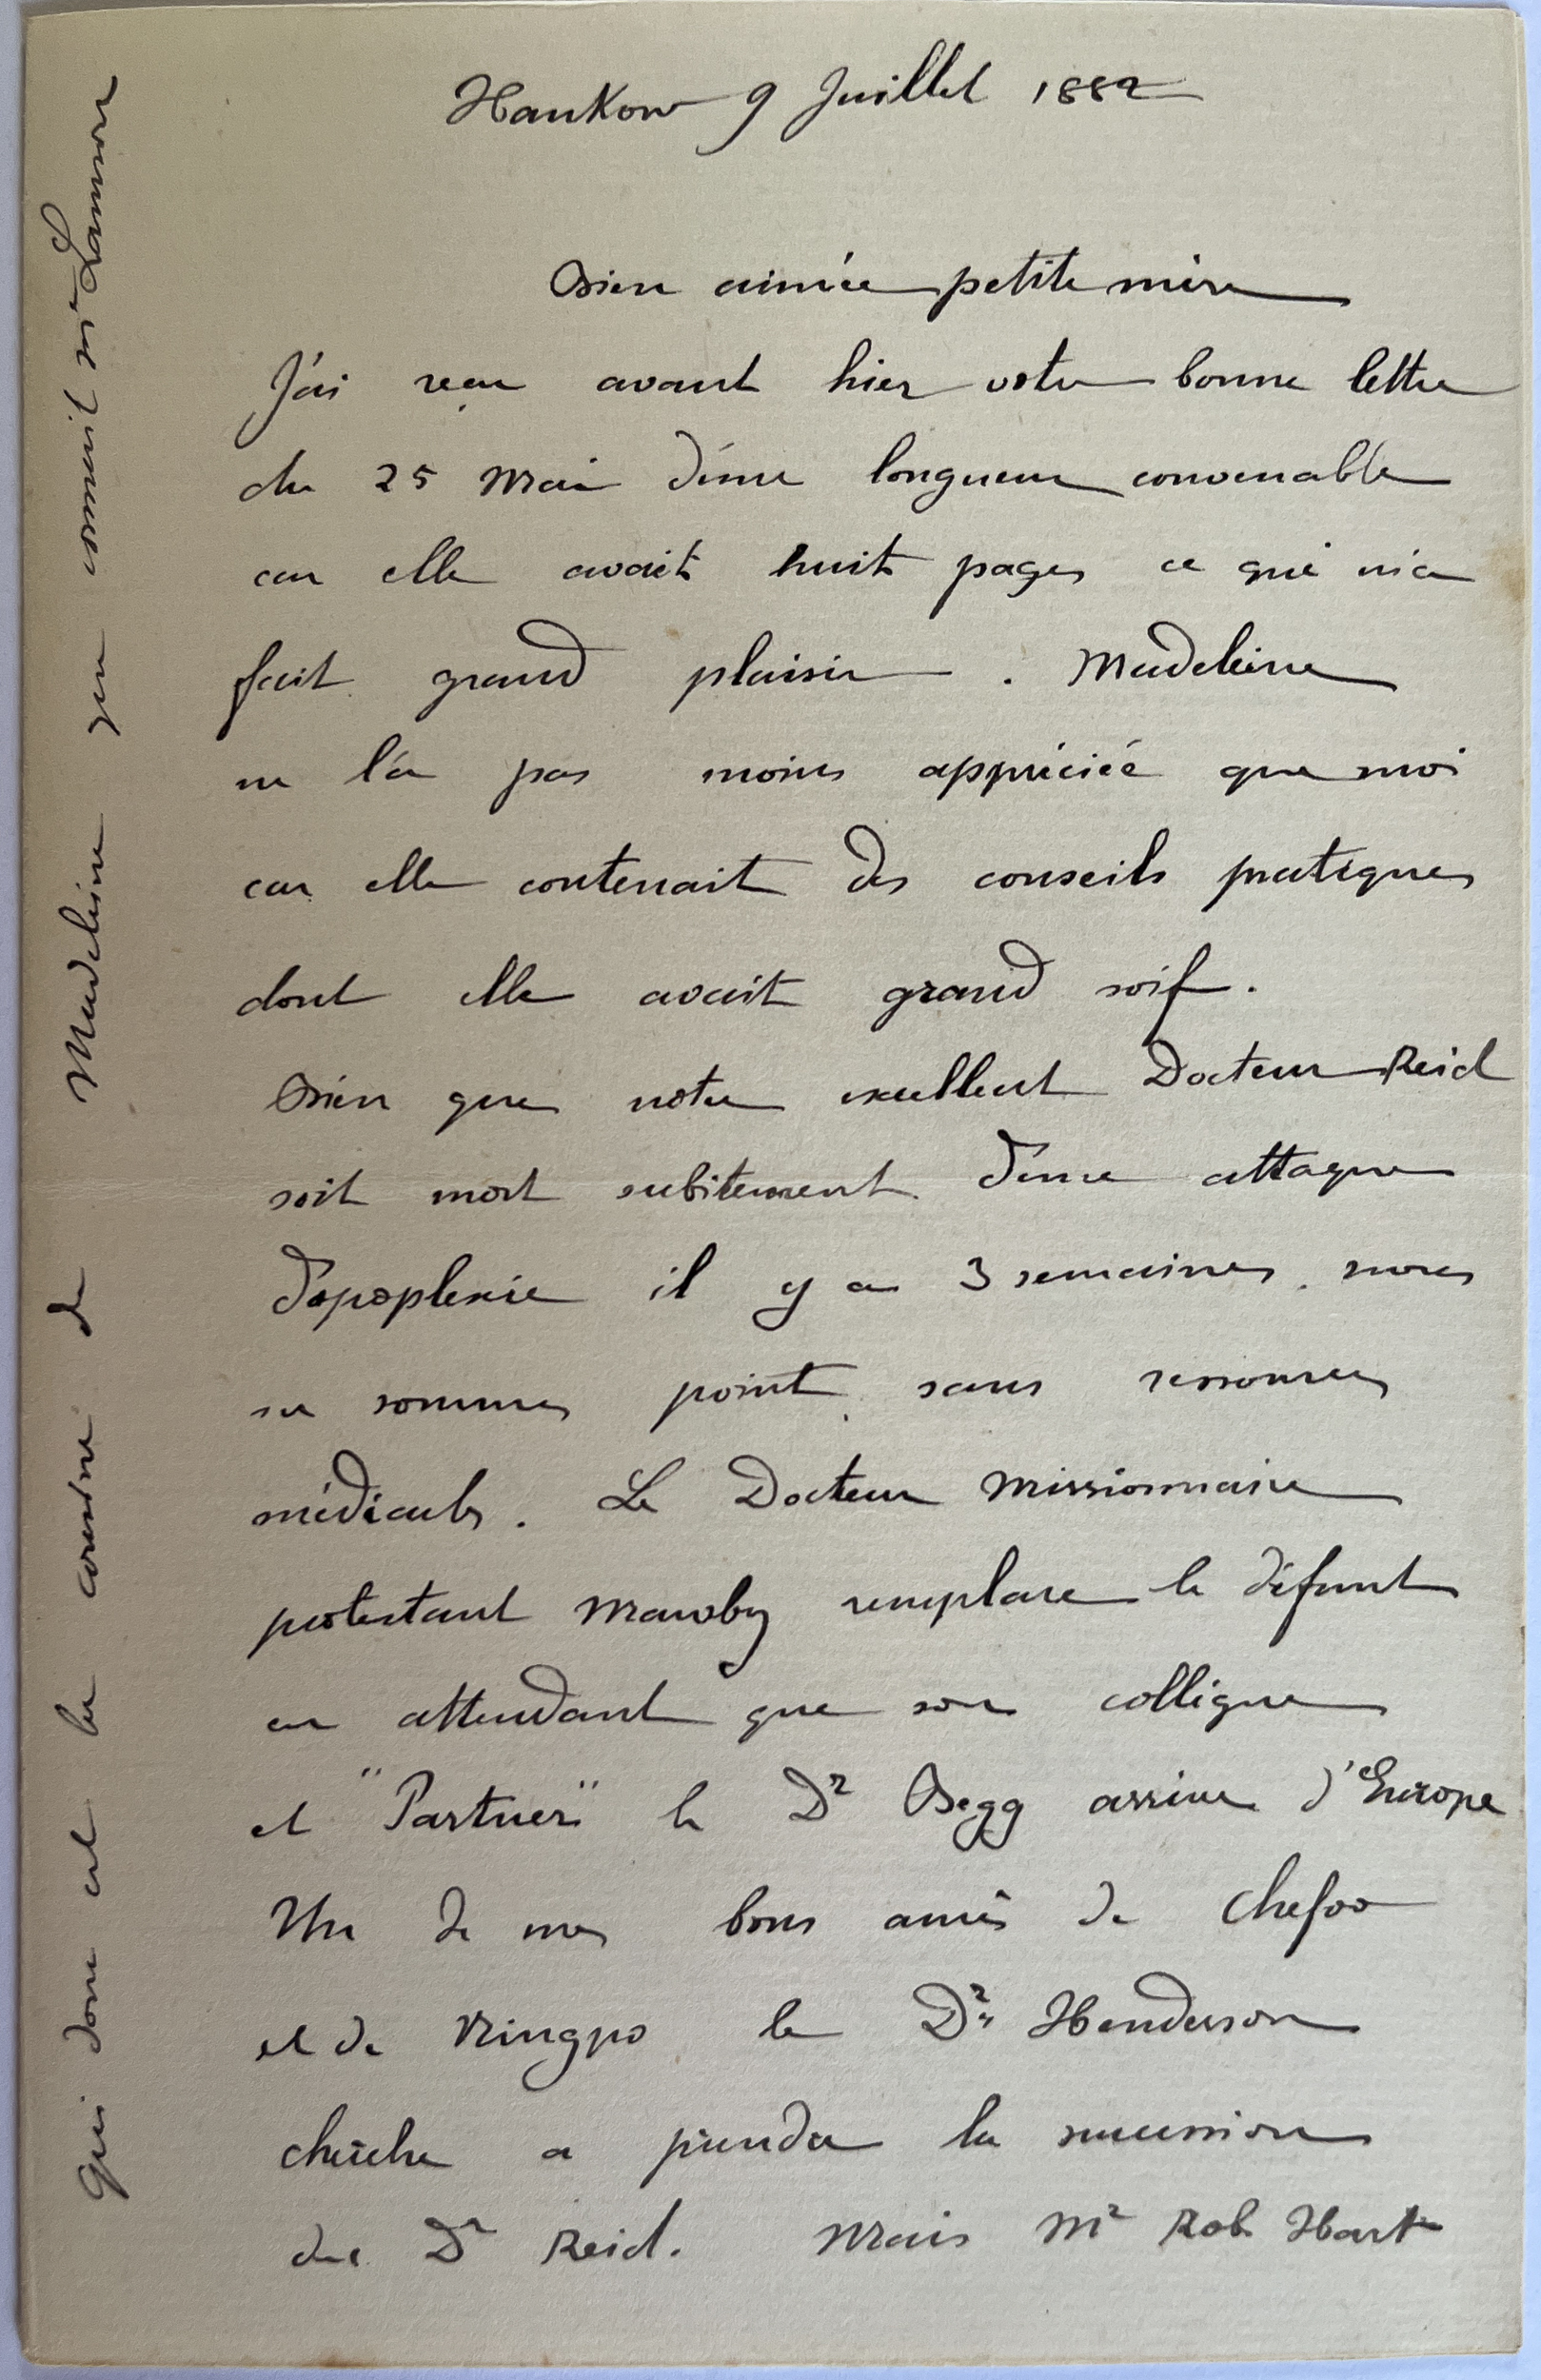 Hankow 9 Juillet 1882
Bien aimée petite mère
J'ai reçu avant hier votre bonne lettre
du 25 Mai d'une longueur convenable
car elle avait huit pages ce qui m'a
fait grand plaisir. Madeleine
ne l'a pas moins appréciée que moi
car elle contenait des conseils pratiques
dont elle avait grand soif.
Bien que notre excellent Docteur Reid
soit mort subitement d'une attaque
d'apoplexie il y a 3 semaines, nous
ne sommes point sans ressources
médicales. Le Docteur Missionnaire
protestant Mawby remplace le défunt
en attendant que son collègue
et "Partner" le Dr Begg arrive d'Europe
Un de mes bons amis de Chefoo
et de Ningpo le Dr Henderson
cherche a prendre la succession
du Dr Reid. Mais Mr Rob Hart
Qui donc est la cousine de Madeleine qui connait Mr Lannoy